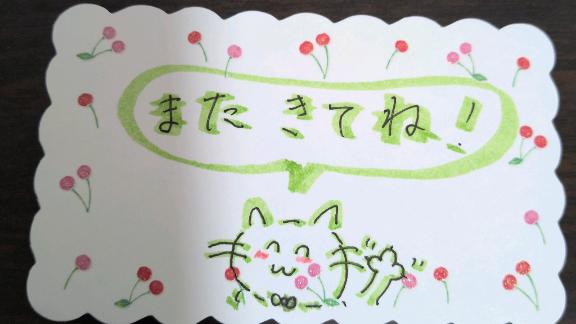 また きてね!